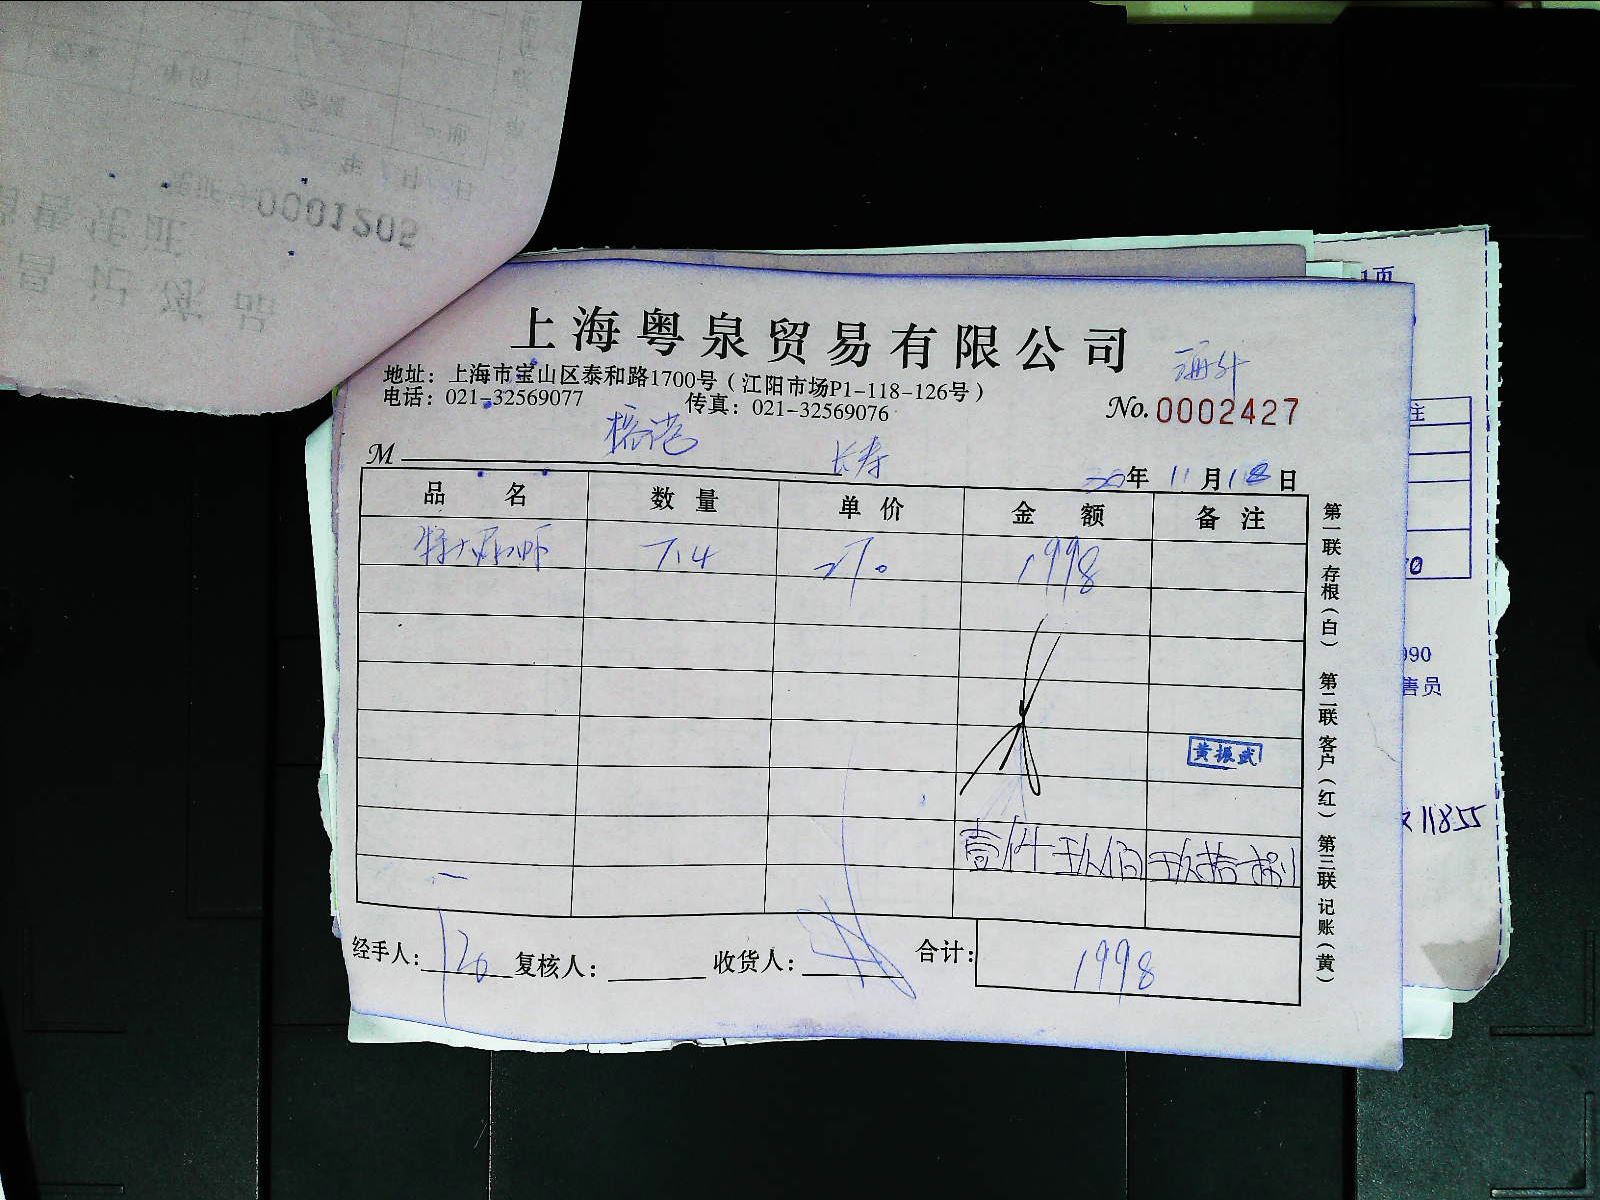 0001205
上海粤泉贸易有限公司
地址：上海市宝山区泰和路1700号（江阳市场P1-118-126号）
电话：021-32569077 传真：021-32569076
No. 0002427
M 长寿
20年 11月18日
品 名 数 量 单 价 金 额 备 注
7.4 270 1998
黄振武
壹仟玖佰玖拾捌
经手人： 复核人： 收货人： 合计： 1998
第一联 存根（白） 第二联 客户（红） 第三联 记账（黄）
1页
注
990
售员
11855